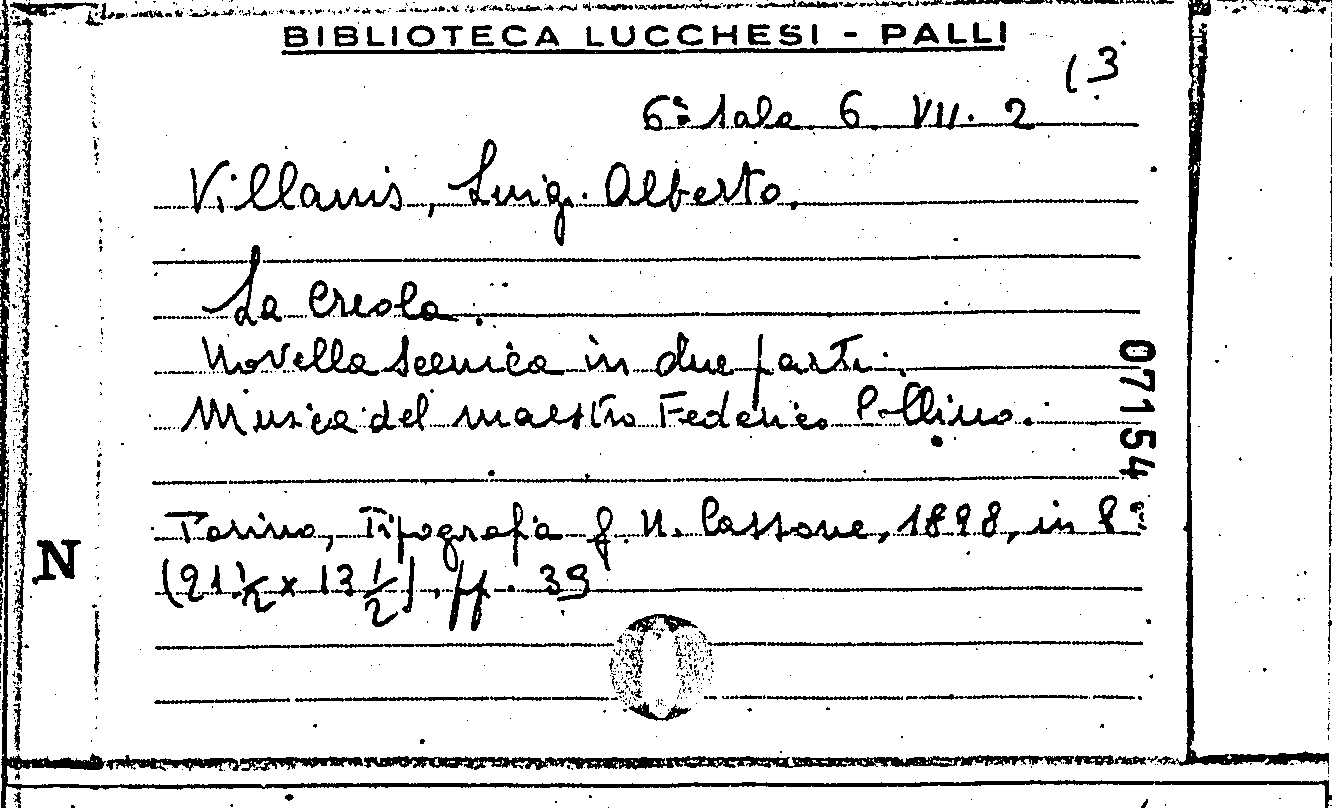 BIBLIOTECA LUCCHESI - PALLI
(3
6ª Sala 6 VII. 2
Villanis, Luigi Alberto.
La Creola.
Novella scenica in due parti.
Musica del maestro Federico Collino.
07154
Torino, Tipografia G. U. Cassone, 1898, in 8º
(21 1/2 x 13 1/2), pp. 39
N